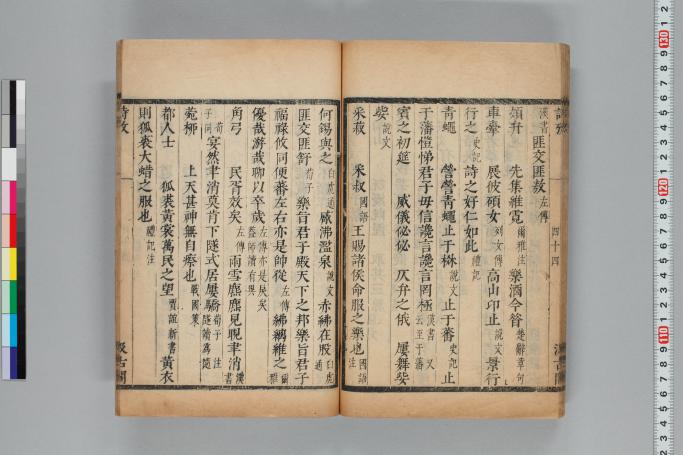 漢書匪交匪敖左傳
頍弁　先集維霓爾雅注樂酒今昔楚辭章句
車舝　展彼碩女列女傳高山卬止說文景行
行之史記詩之好仁如此禮記
青蠅　營營青蠅止于楙說文止于藩史記止
于藩愷悌君子毋信讒言讒言罔極漢書又云至于藩
賓之初筵　威儀佖佖　仄弁之俄　屢舞娑
娑說文
采菽　采叔國語王賜諸侯命服之樂也國語注
何錫與之白虎通觱沸濫泉說文赤紼在股白虎通
匪交匪紓荀子樂旨君子殿天下之邦樂旨君子
福祿攸同便蕃左右亦是帥從左傳紼縭維之爾雅
優哉游哉聊以卒歲左傳
角弓　民胥效矣左傳雨雪麃麃見晛聿消漢書
宴然聿消莫肯下隧式居屢驕荀子注
菀柳　上天甚神無自瘵也戰國策
都人士　狐裘黃裳萬民之望賈誼新書黃衣
則狐裘大蜡之服也禮記注
詩攷
汲古閣
四十四